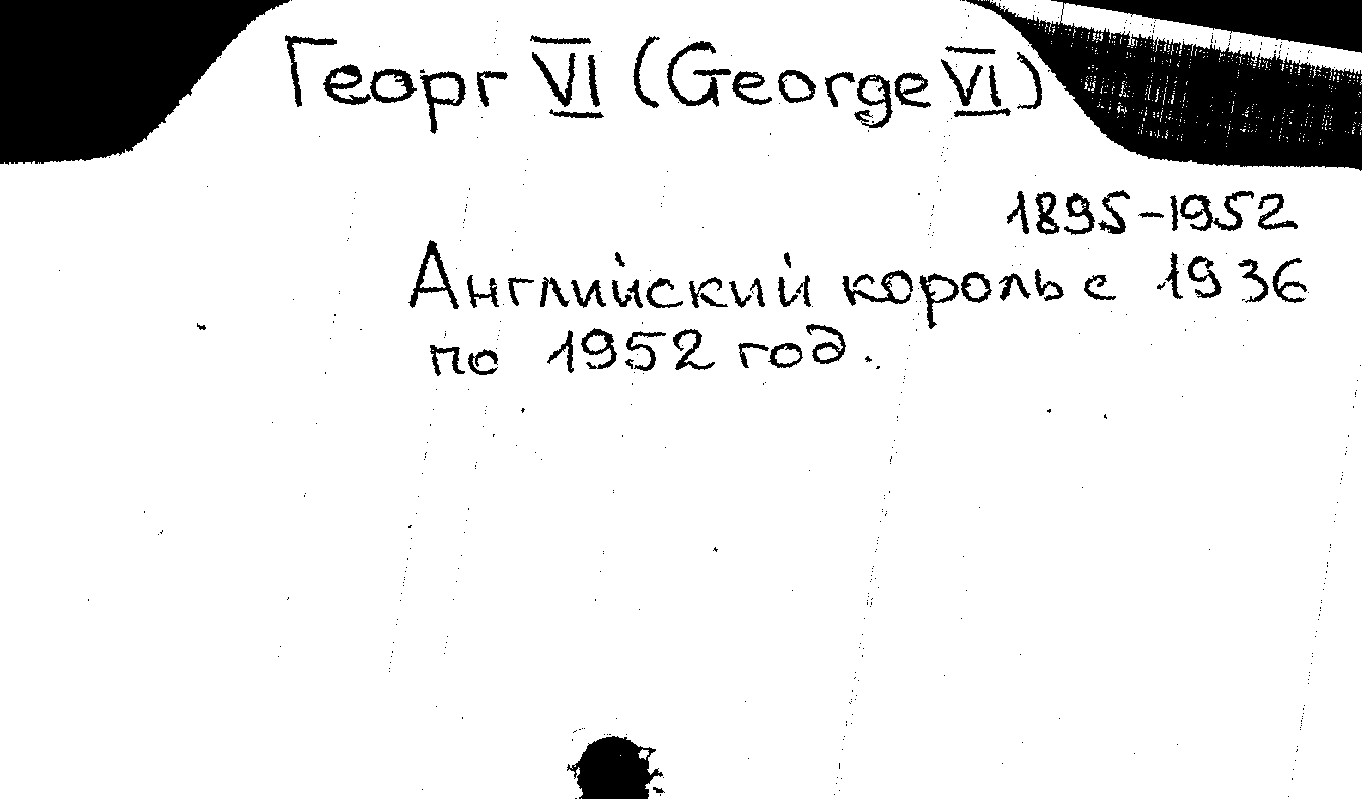 Георг VI (George VI)
1895-1952
Английский король с 1936
по 1952 год.